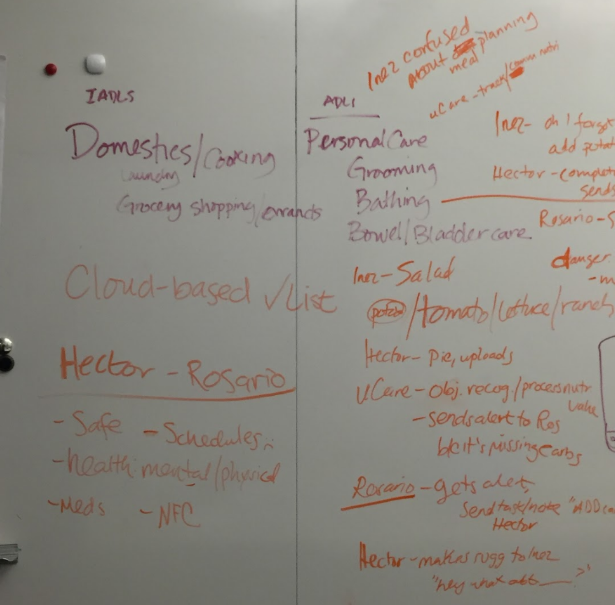 IADLS
Domestics/Cooking
Laundry
Grocery shopping/errands
Cloud-based √List
Hector - Rosario
- Safe - Schedules
- health: mental/physical
- Meds - NFC
Inez confused
about meal planning
uCare - track/
ADLs
Personal Care
Grooming
Bathing
Bowel/Bladder care
Inez- oh I forgot
add potat
Hector - complet
sends
Rosario - S
danger
- m
Inez - Salad
potato/tomato/lettuce/ranch
Hector - Pic, uploads
uCare - Obj. recog./process nutr
value
- sends alert to Ros
b/c it's missing carbs
Rosario - gets alert,
send task/note "ADD ca
Hector
Hector - makes sugg to Inez
"hey what abt ___?"